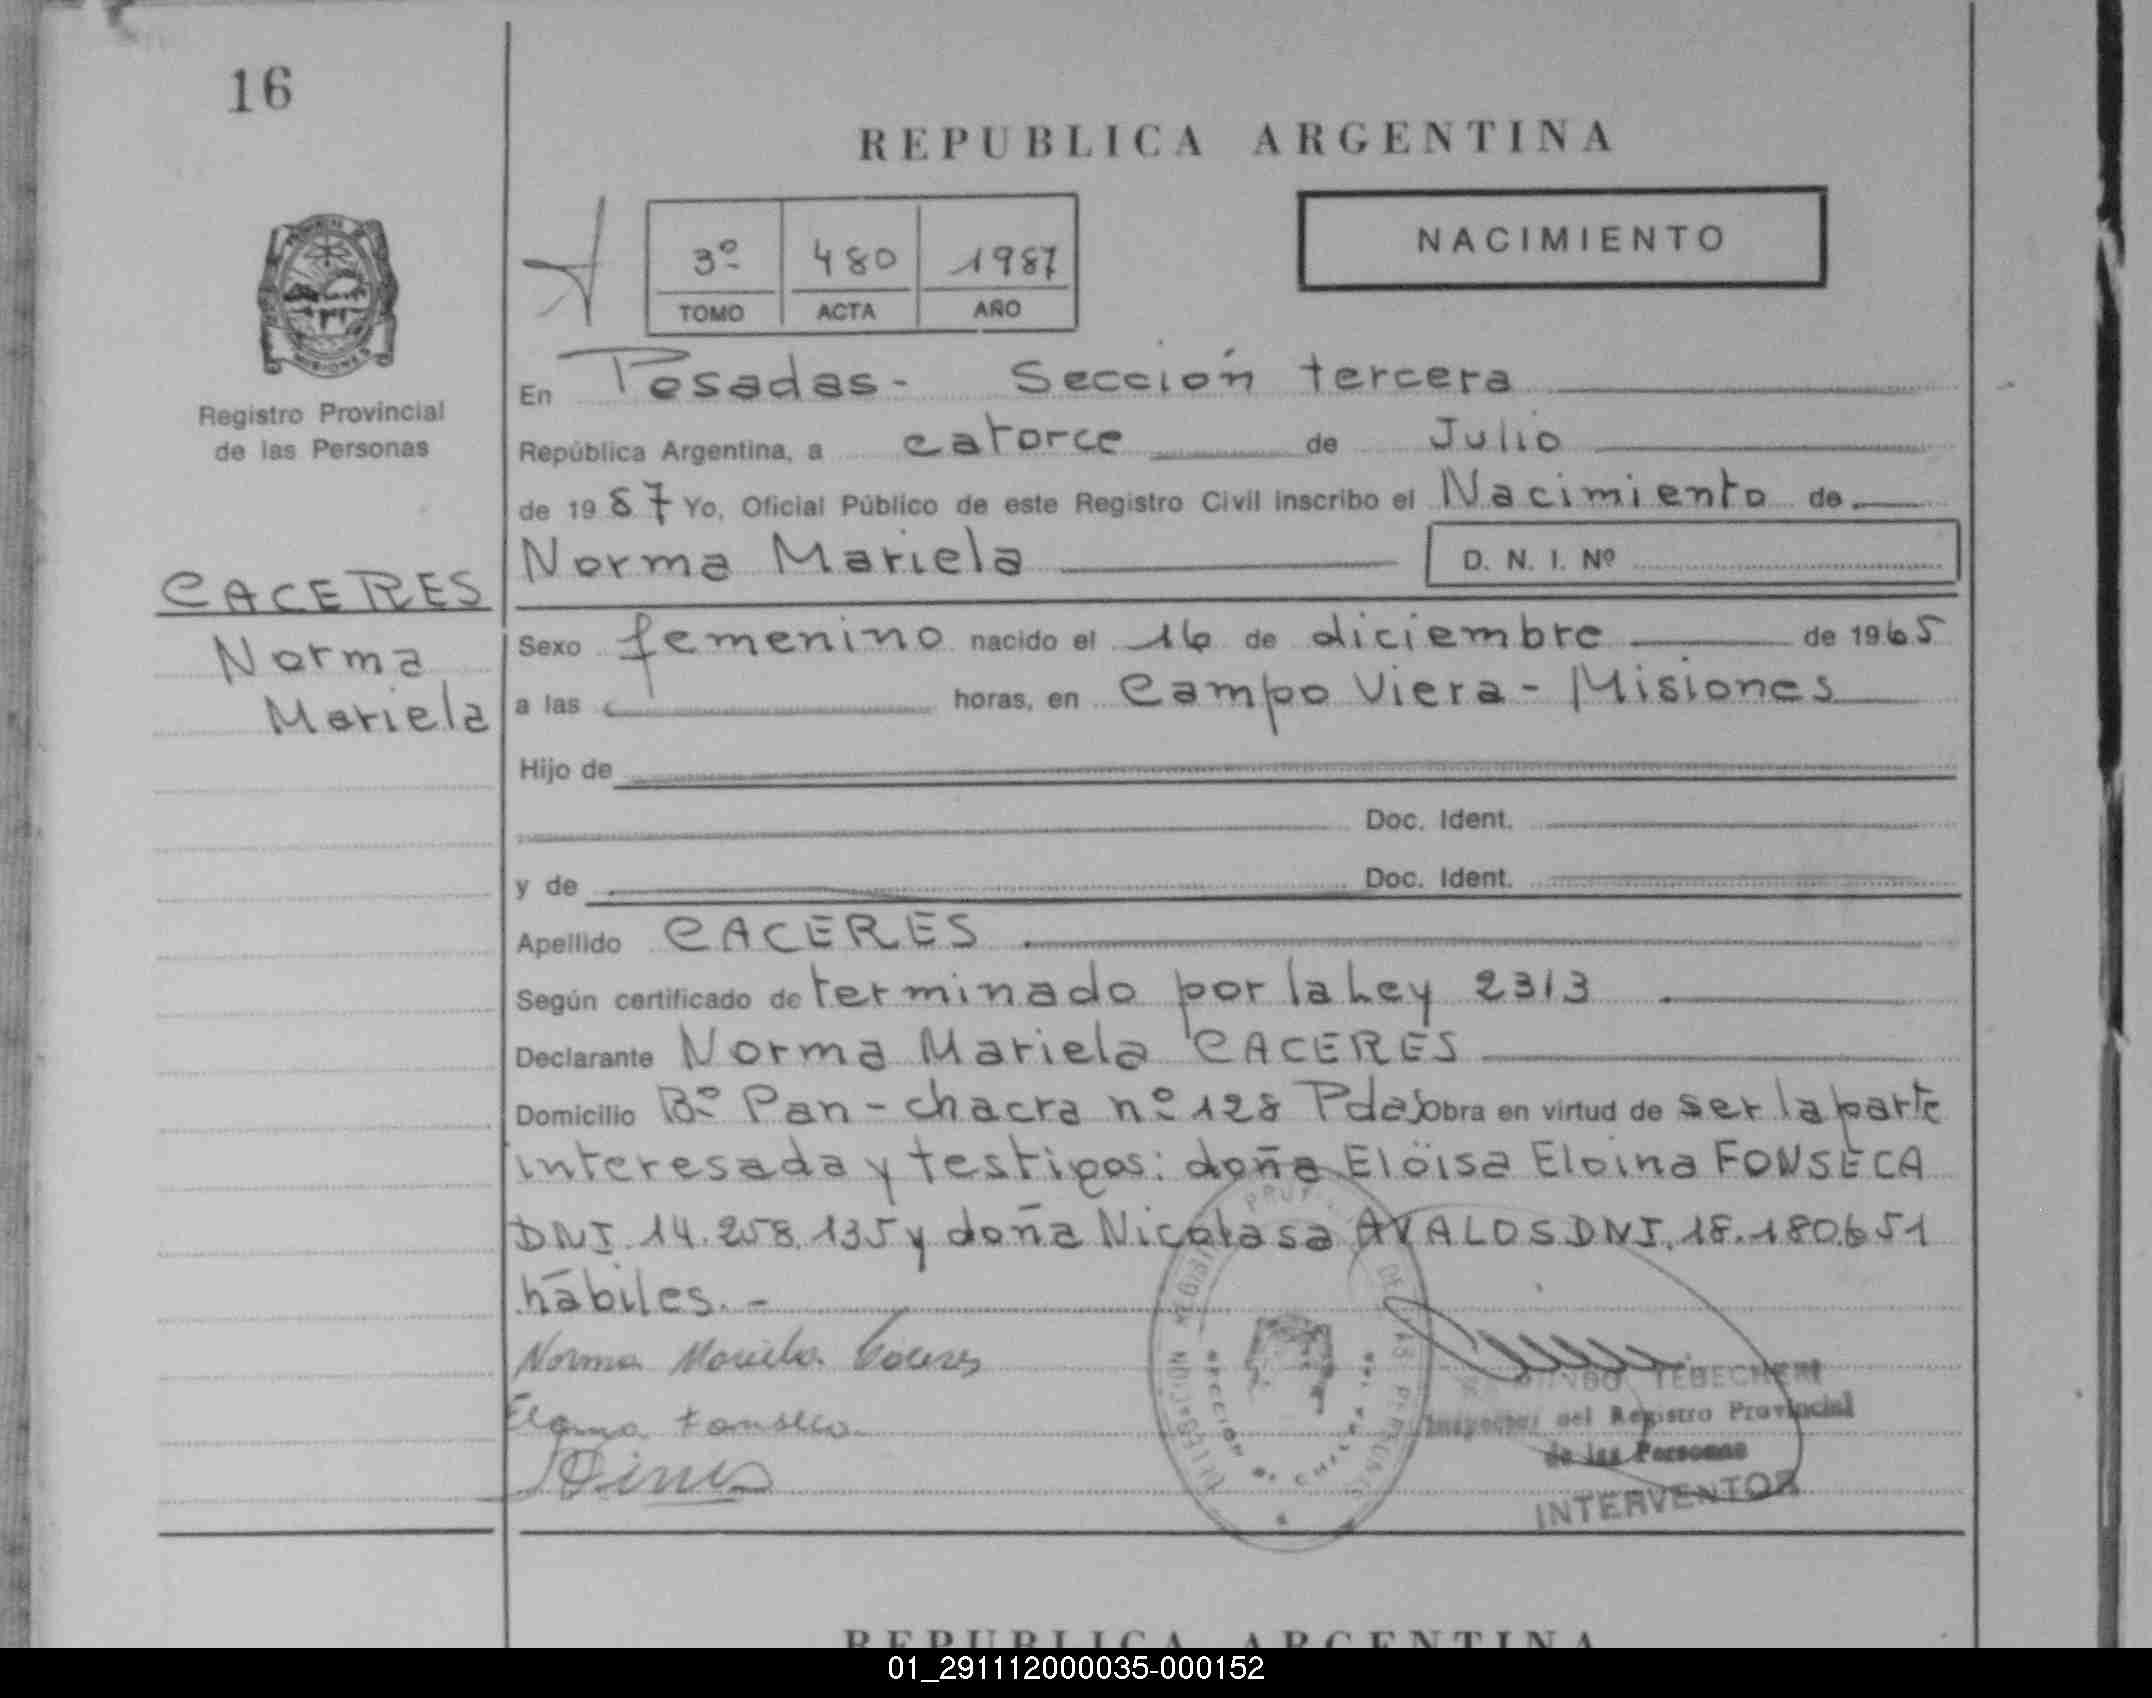 16
REPUBLICA ARGENTINA
3º 480 1987
TOMO ACTA AÑO
NACIMIENTO
MISIONES
Registro Provincial
de las Personas
CACERES
Norma
Mariela
En Posadas- Sección tercera
República Argentina, a catorce de Julio
de 1987 Yo, Oficial Público de este Registro Civil inscribo el Nacimiento de
Norma Mariela D. N. I. Nº
Sexo femenino nacido el 16 de diciembre de 1965
a las horas, en Campo Viera - Misiones
Hijo de
Doc. Ident.
y de Doc. Ident.
Apellido CACERES
Según certificado determinado por la Ley 2313
Declarante Norma Mariela CACERES
Domicilio Bº Pan - chacra nº 128 Pdas Obra en virtud de ser la parte
interesada y testigos: doña Eloisa Eloina FONSECA
DNI. 14.258.135 y doña Nicolasa AVALOS DNI. 18.180.651
hábiles. -
Norma Mariela Caceres
Fonseca
TEBECHERI
Inspector del Registro Provincial
de las Personas
INTERVENTOR
REPUBLICA ARGENTINA
01_291112000035-000152